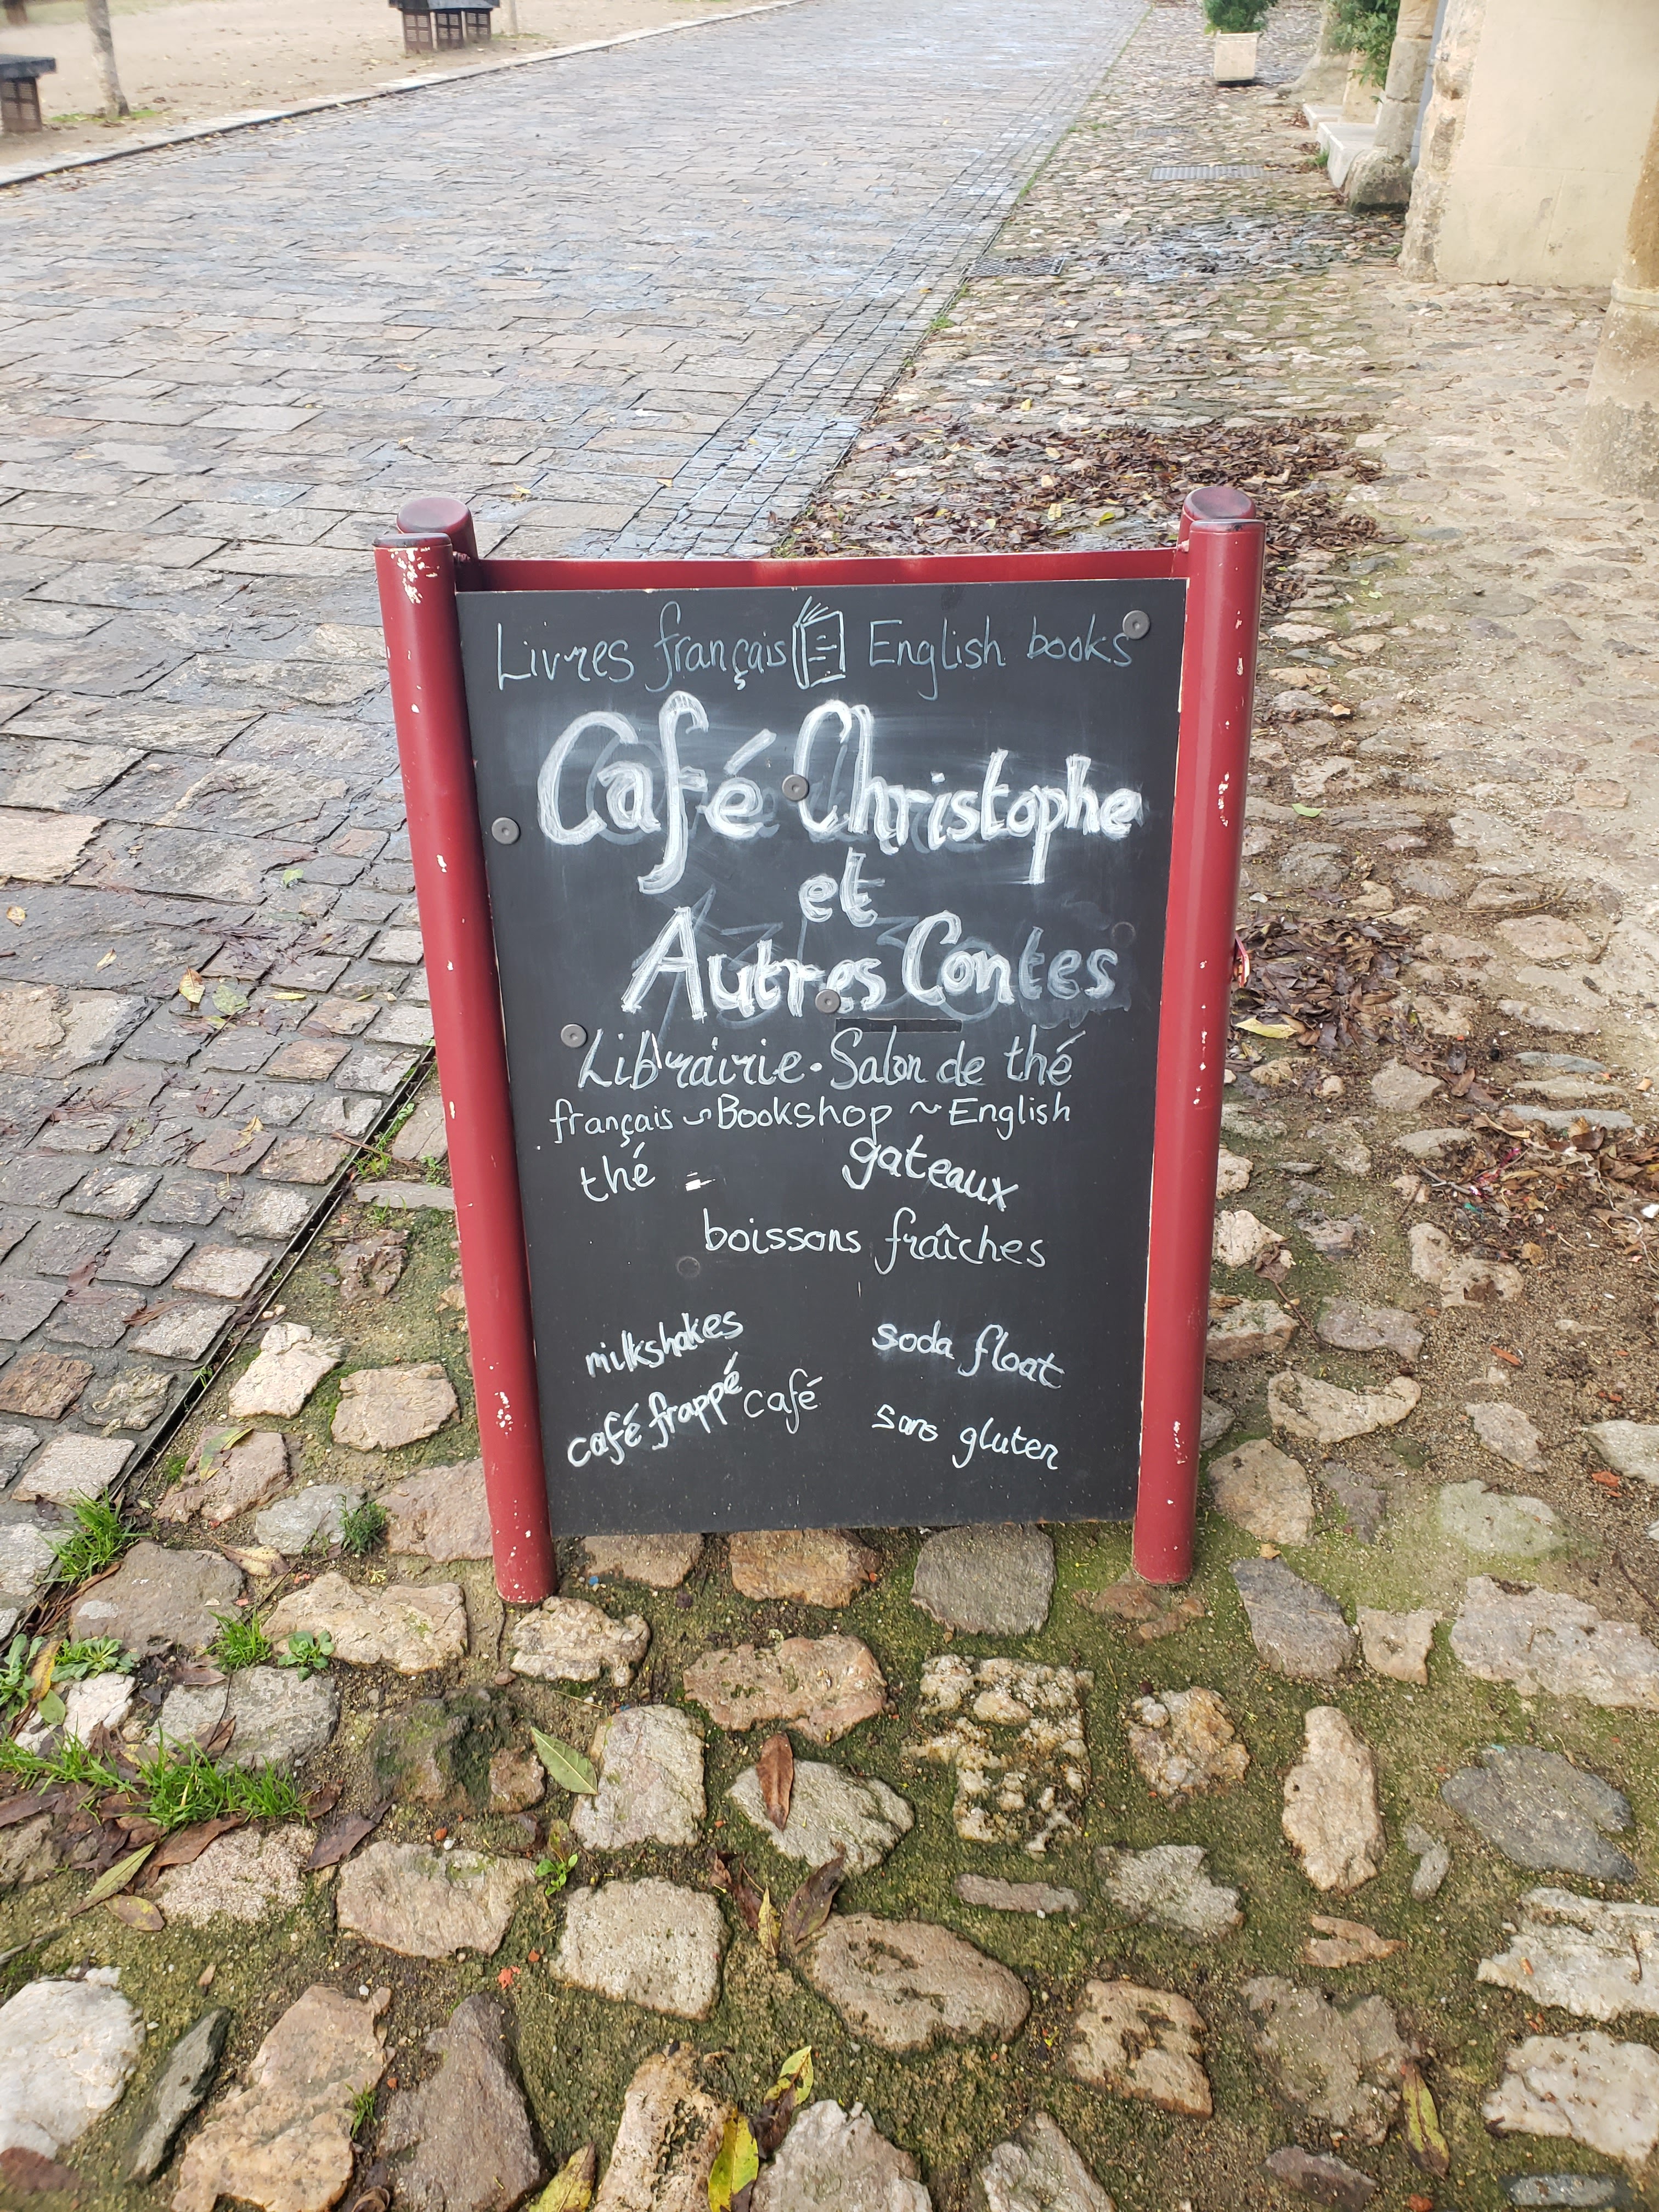 Livres français English books
Café Christophe
et
Autres Contes
Librairie·Salon de thé
français ~ Bookshop ~ English
thé - gateaux
boissons fraîches
milkshakes soda float
café frappé café sans gluten